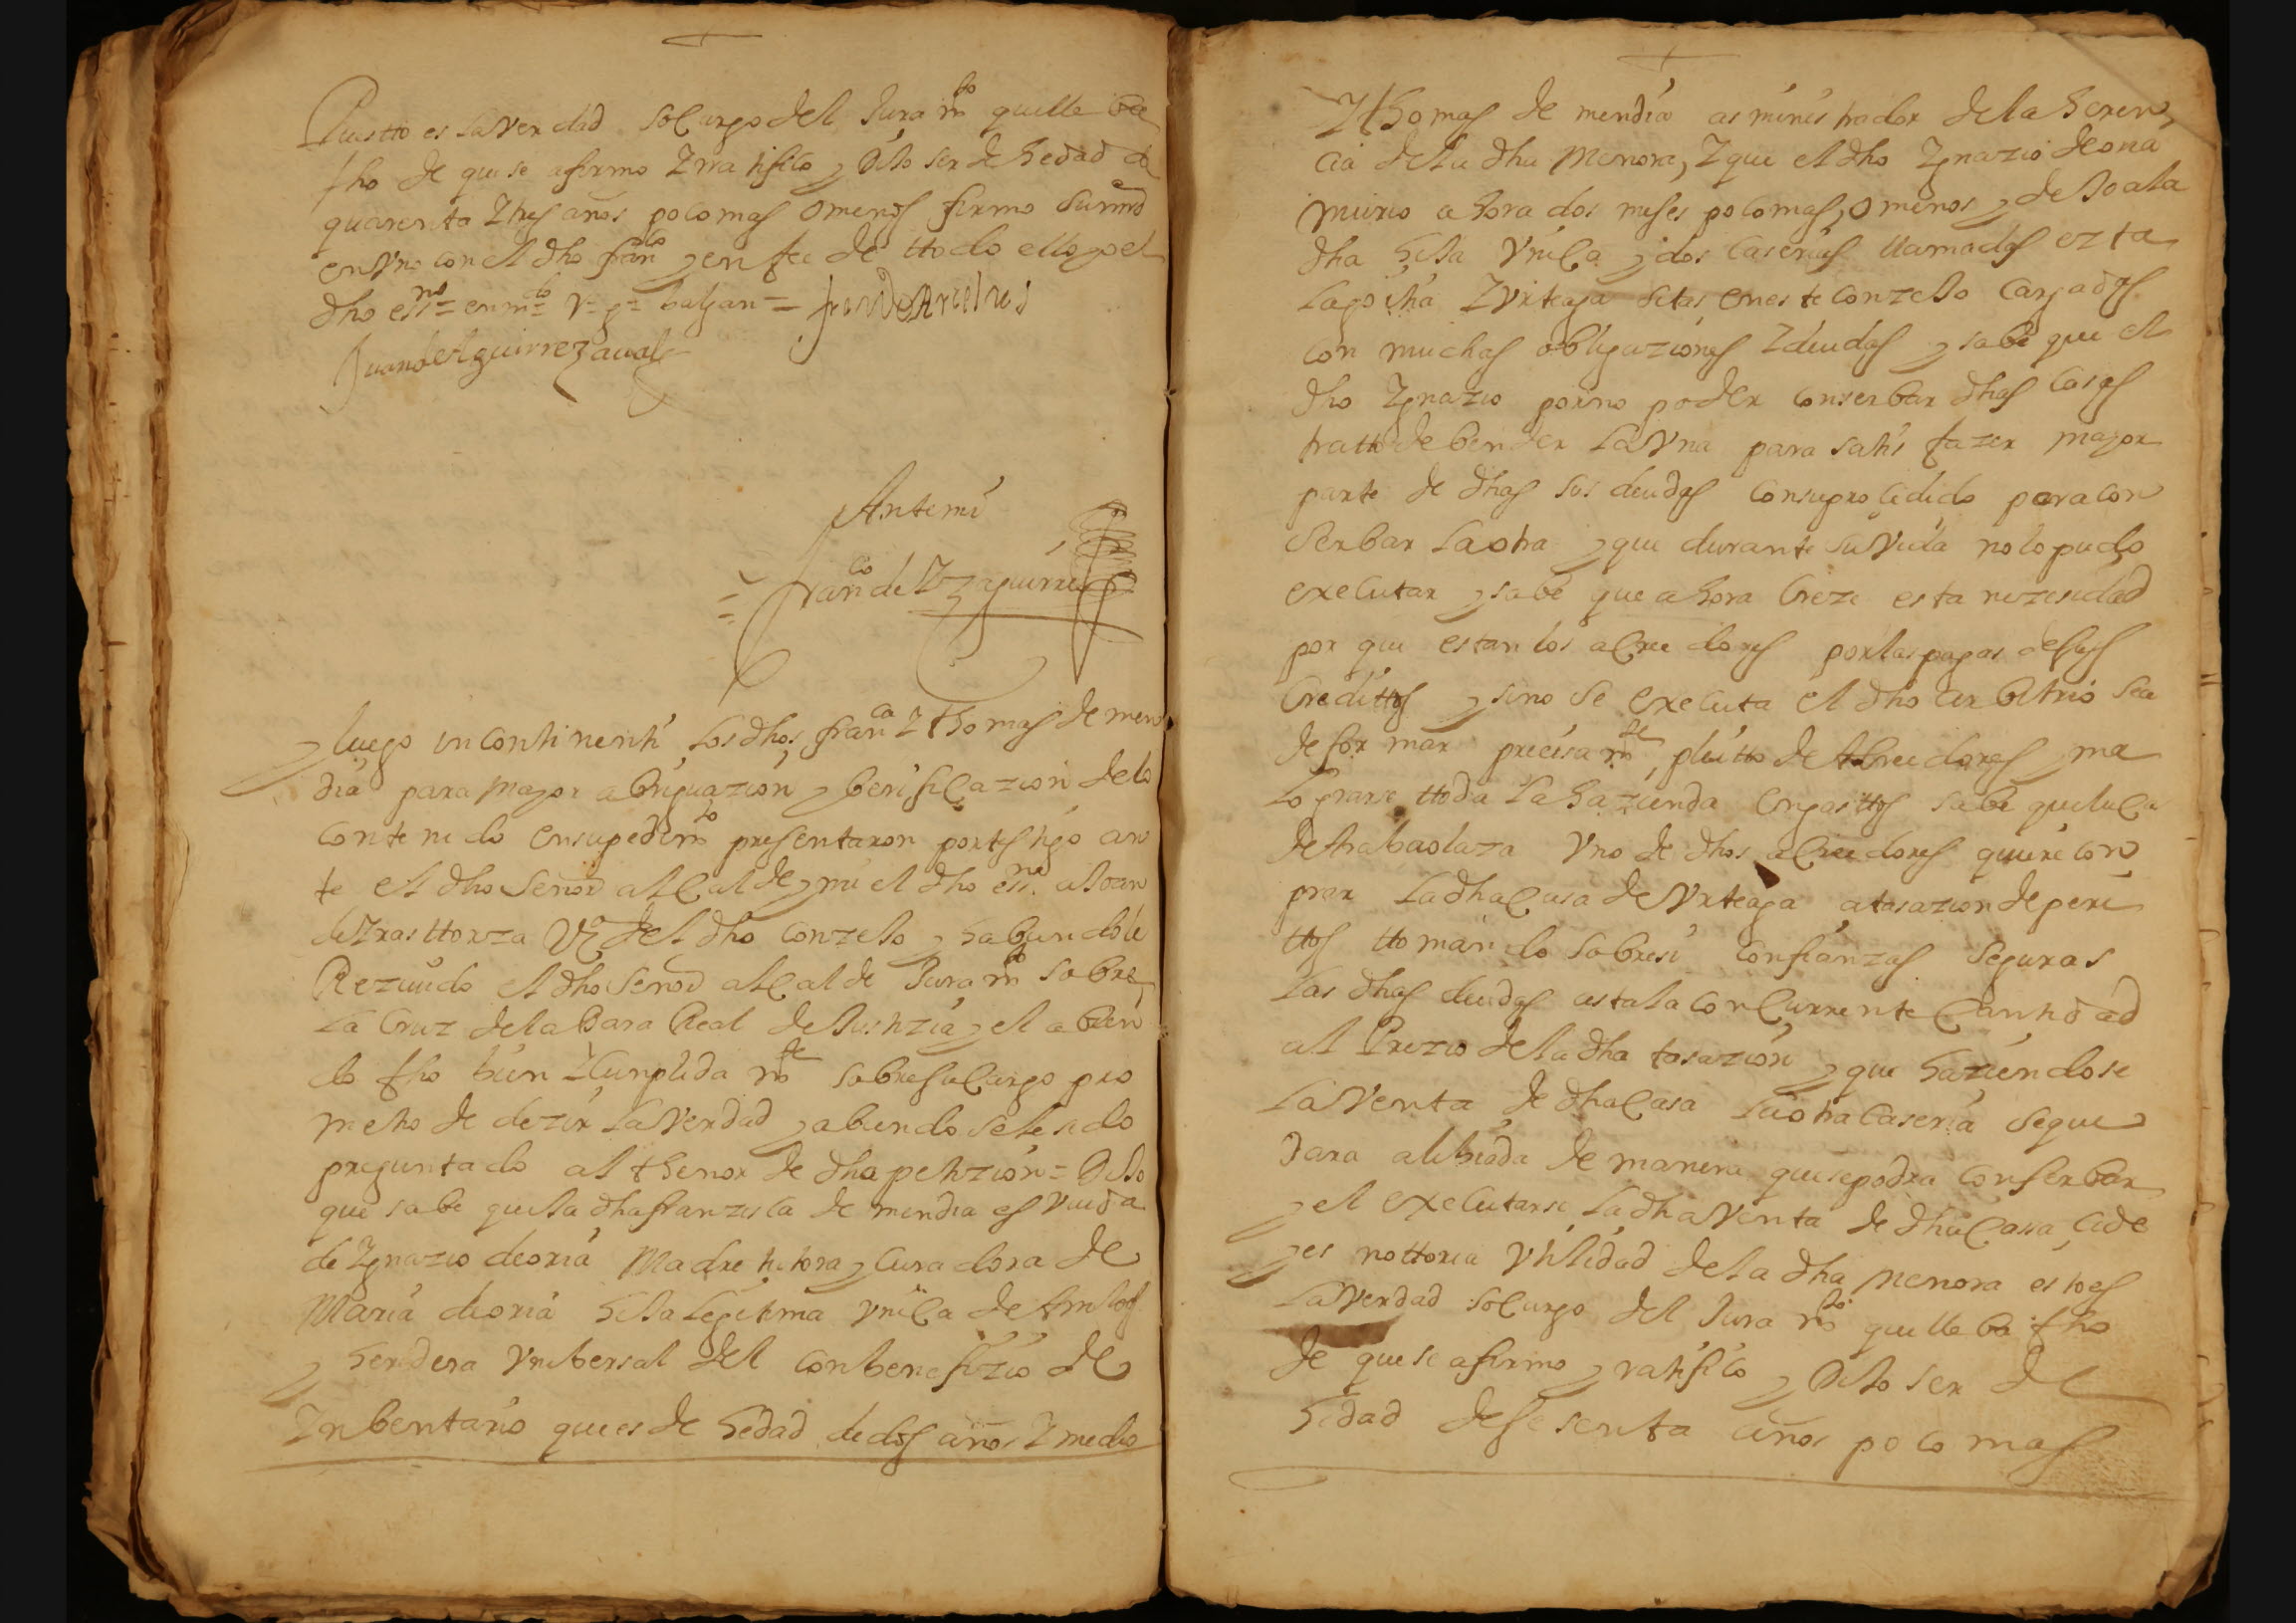 questo es la verdad so cargo del Juramto que lleba
fho de que se afirmo y rratifico y Dijo ser de hedad de
quarenta y tres años poco mas o menos firmo su mrd
en vno con el dho franco y en fee de ttodo ello yo el
dho essno = enmdo
Juan de Aguirrezaual
Antemi
Franco de Yzaguirre
y luego yn continenti los dhos franca y thomas de men
dia para mayor aberiguazion y berificazion de lo
contenido en su pedimto presentaron por testigo an
te el dho Señor alcalde y mi el dho essno a Joan
de Yrasttorza Vo del dho conzejo y habiendole
Rezuido el dho Señor alcalde Juramto sobre
la Cruz de la Bara Real de Justizia y el abien
do fho bien y cumplidamte so bre su cargo pro
metio de dezir la verdad y abiendosele sido
preguntado al thenor de dha petizion = Dijo
que sabe que la dha franzisca de mendia es viuda
de Ygnazio de oria Madre tutora y Curadora de
Maria de oria hija legitima vnica de Ambos
y heredera vnibersal del con benefizio de
Ynbentario que es de hedad de dos años y medio
Y thomas de mendia asministrador de la heren
cia de la dha Menora, y que el dho Ygnazio de oria
murio ahora dos meses poco mas o menos y dejo a la
dha hija vnica y dos caserias llamadas ezta
lagoitia y vrteaga sitas en este conzejo cargadas
con muchas obligaziones y deudas y sabe que el
dho Ygnazio por no poder conserbar dhas casas
tratto de bender la vna para satisfazer mayor
parte de dhas sus deudas con su prozedido para con
serbar la otra y que durante su vida no lo pudo
executar y sabe que ahora Creze esta nezesidad
por que estan los acreedores por las pagas de sus
Credittos y si no se executa el dho arbitrio se a
de formar precisamte pleitto de Acreedores y ma
lograrse ttoda la hazienda en gasttos sabe que luca
de Arabaolaza vno de dhos acreedores quiere con
prar la dha casa de Vrteaga a tasazion de peri
ttos ttomando sobre si con fianzas seguras
las dhas deudas asta la concurrente Cantidad
al Prezio de la dha tasazion y que haziendose
la venta de dha casa la otra caseria se que
dara alibiada de manera que se podra conserbar
y el executarse la dha venta de dha casa cide
y es nottoria vtilidad de la dha menora esto es
la verdad so cargo del Juramto que lleba fho
de que se afirmo y ratifico y Dijo ser de
hedad de sesenta años poco mas